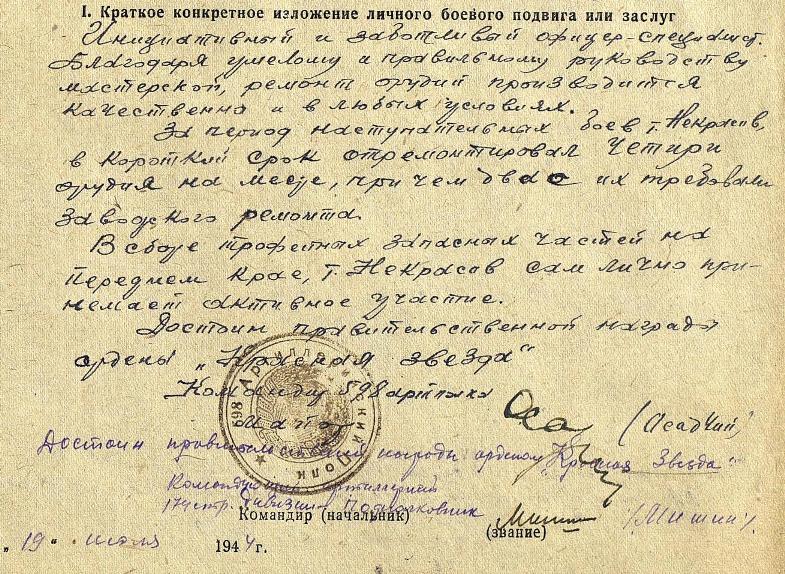 I. Краткое конкретное изложение личного боевого подвига или заслуг
Инициативный и заботливый офицер-специалист.
Благодаря умелому и правильному руководству
мастерской, ремонт орудий производится
качественно и в любых условиях.
За период наступательных боев т. Некрасов,
в короткий срок отремонтировал четири
орудия на месте, при чем два с их требовали
заводского ремонта.
В сборе трофейных запасных частей на
переднем крае, т. Некрасов сам лично при-
немает активное участие.
Достоин правительственной награды
ордены „Красная звезда"
Командир 598 артполка
(Осадчий)
698 Артиллерийский Полк
Достоин правительственной награды орденом „Красная Звезда"
Командующий артиллерией
174 стр. дивизии Подполковник
Командир (начальник)
(звание)
/Мишин/.
„19" июля 1944 г.